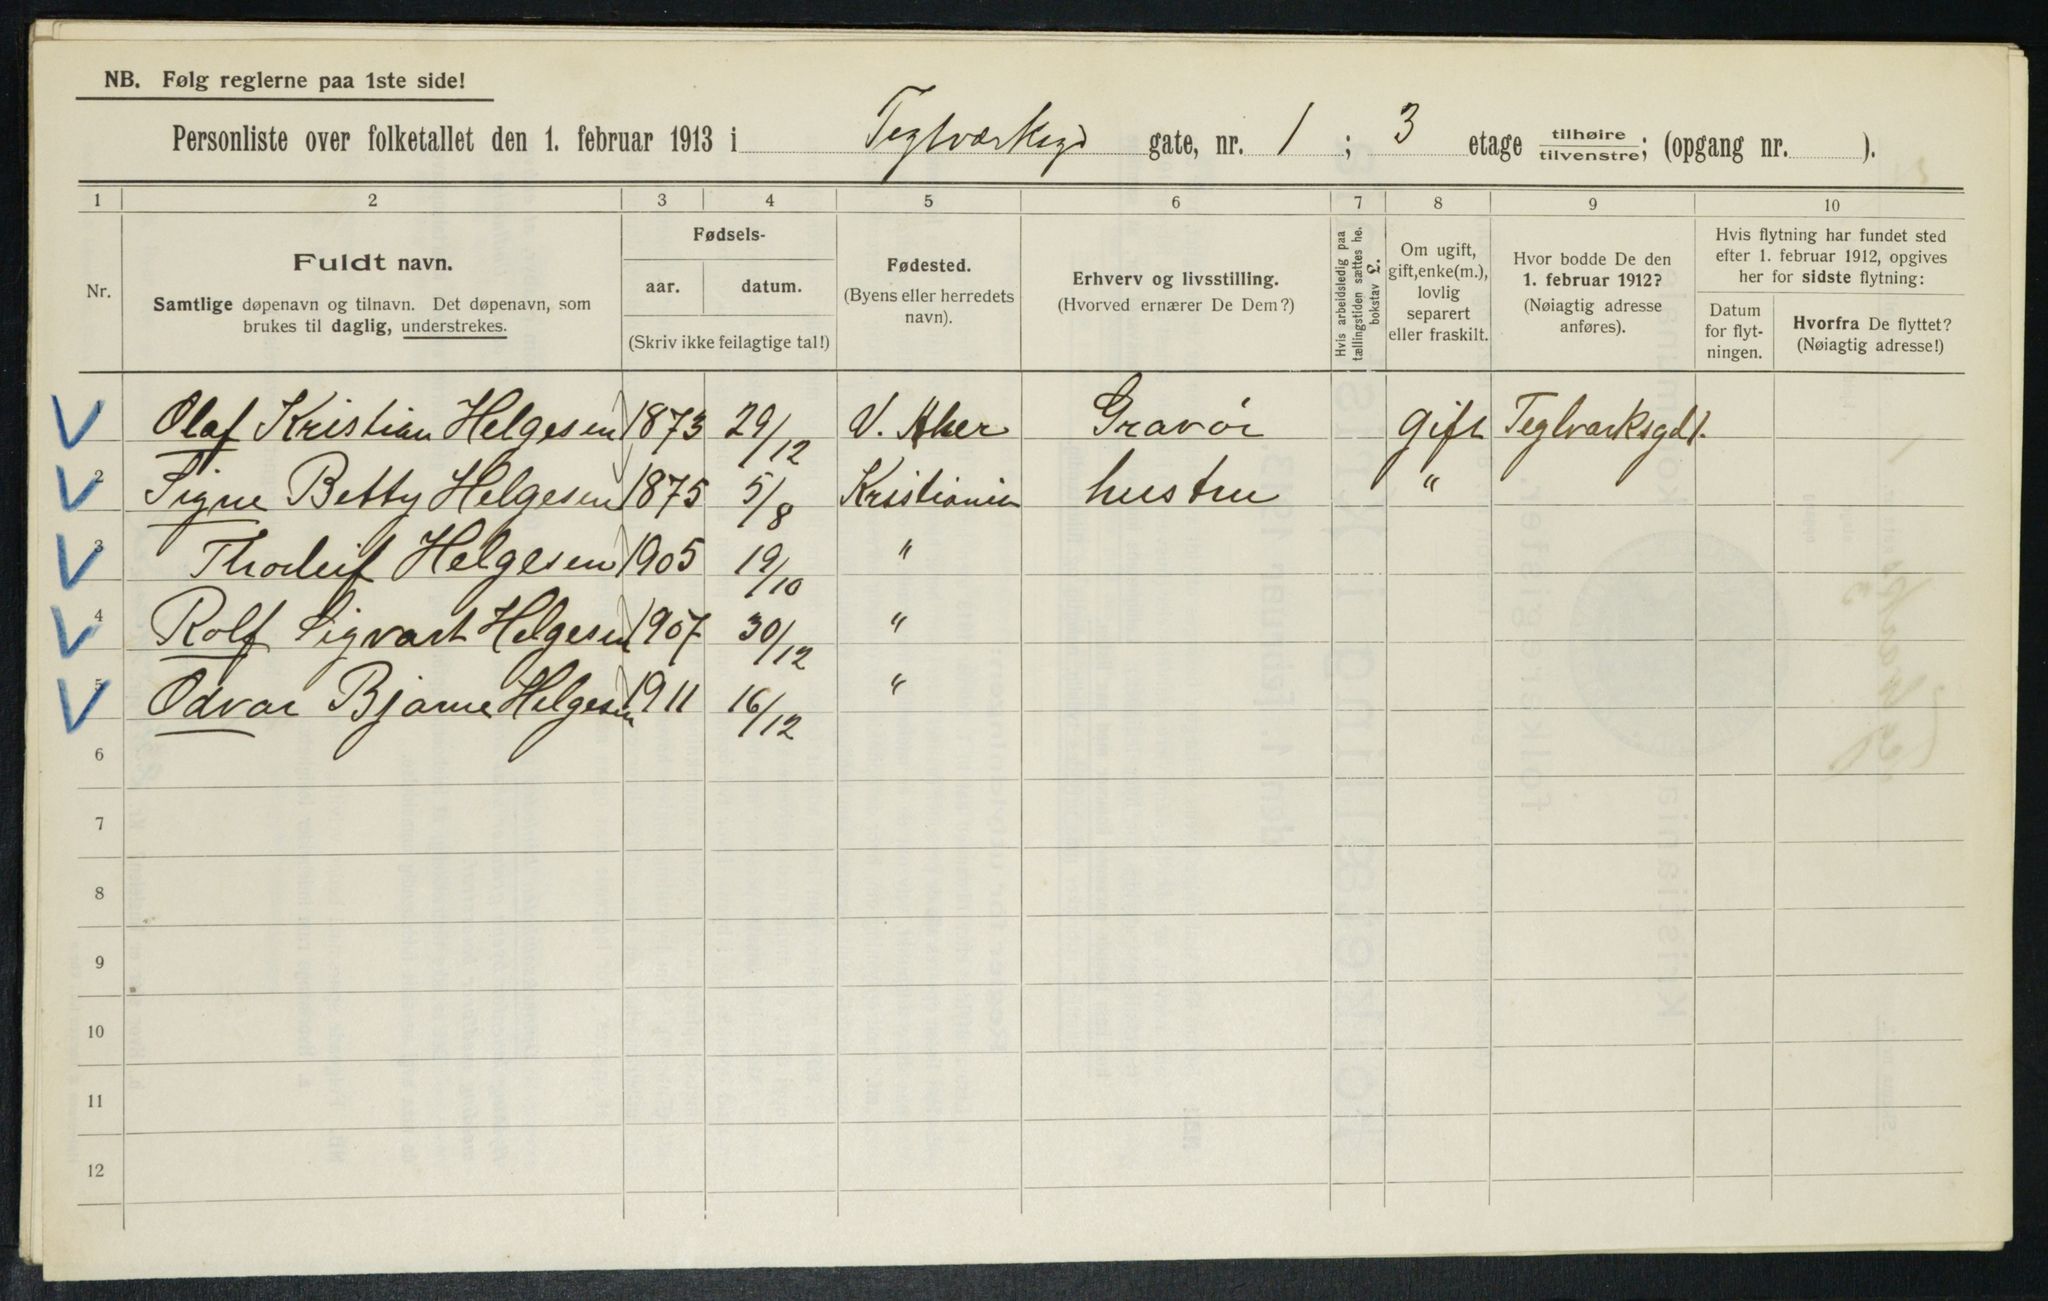 NB. Følg reglerne paa 1ste side!
Personliste over folketallet den 1. februar 1913 i Teglværksgd gate, nr. 1 ; 3 etage tilhøire tilvenstre; (opgang nr. ).
1 2 3 4 5 6 7 8 9 10
Nr.
Fuldt navn.
Samtlige døpenavn og tilnavn. Det døpenavn, som
brukes til daglig, understrekes.
Fødsels-
aar. datum.
(Skriv ikke feilagtige tal!)
Fødested.
(Byens eller herredets
navn).
Erhverv og livsstilling.
(Hvorved ernærer De Dem?)
Hvis arbeidsledig paa
tællingstiden sættes he.
bokstav L.
Om ugift,
gift, enke(m.),
lovlig
separert
eller fraskilt.
Hvor bodde De den
1. februar 1912?
(Nøiagtig adresse
anføres).
Hvis flytning har fundet sted
efter 1. februar 1912, opgives
her for sidste flytning:
Datum
for flyt-
ningen.
Hvorfra De flyttet?
(Nøiagtig adresse!)
Olaf Kristian Helgesen 1873 29/12 V. Aker Gravør gift Teglværksgd 1.
2 Signe Betty Helgesen 1875 5/8 Kristiania hustru "
3 Thorleif Helgesen 1905 19/10 "
4 Rolf Sigvart Helgesen 1907 30/12 "
5 Odvar Bjarne Helgesen 1911 16/12 "
6
7
8
9
10
11
12